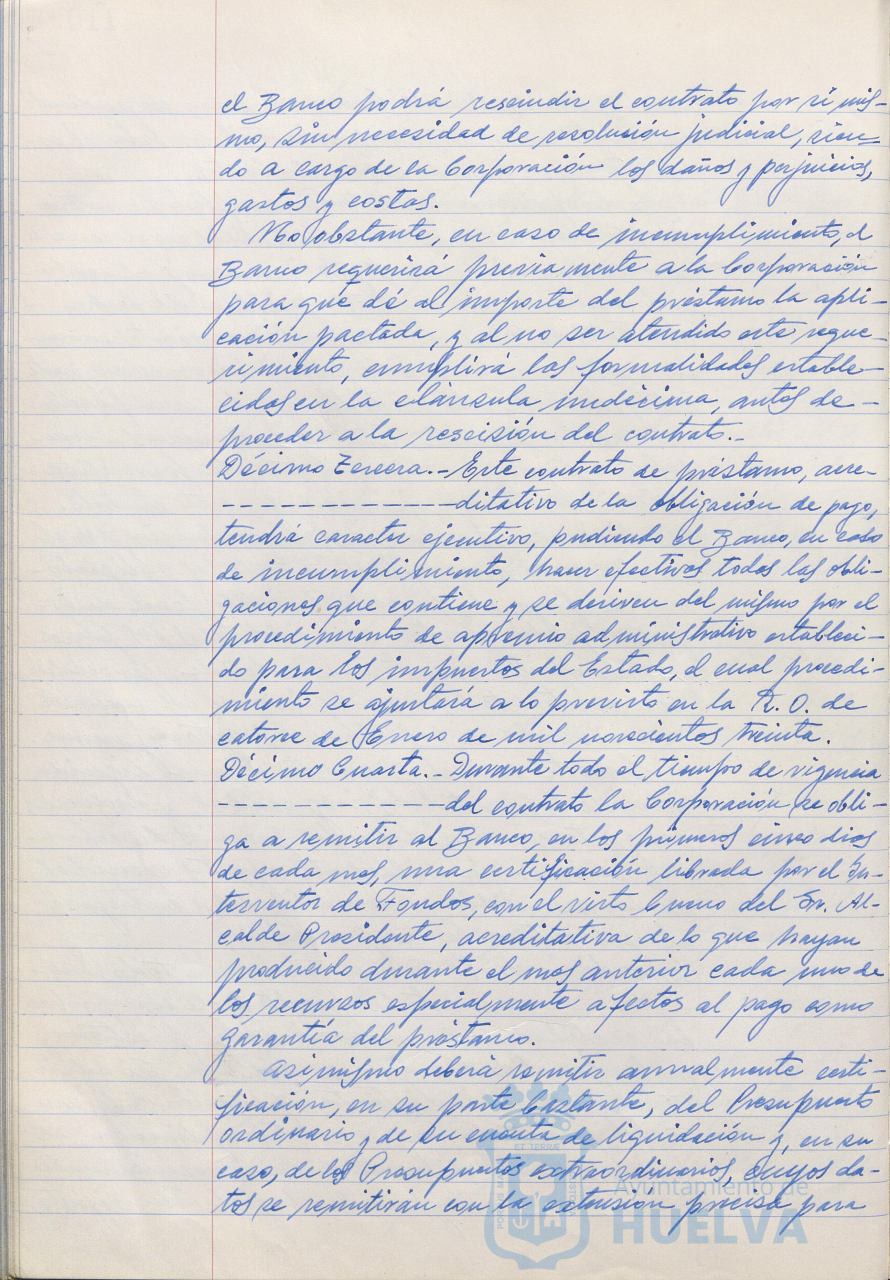 el Banco podrá rescindir el contrato por sí mis-
mo, sin necesidad de resolución judicial, sien-
do a cargo de la Corporación los daños y perjuicios,
gastos y costas.
No obstante, en caso de incumplimiento, el
Banco requerirá previamente a la Corporación
para que dé al importe del préstamo la apli-
cación pactada, y al no ser atendido este reque-
rimiento, cumplirá las formalidades estable-
cidas en la cláusula undécima, antes de -
proceder a la rescisión del contrato.-
Décimo Tercera.- Este contrato de préstamo, acre-
------------- ditativo de la obligación de pago,
tendrá caracter ejecutivo, pudiendo el Banco, en caso
de incumplimiento, hacer efectivas todas las obli-
gaciones que contiene y se deriven del mismo por el
procedimiento de apremio administrativo estableci-
do para los impuestos del Estado, el cual procedi-
miento se ajustará a lo previsto en la R. O. de
catorce de Enero de mil novecientos treinta.
Décimo Cuarta.- Durante todo el tiempo de vigencia
------------- del contrato la Corporación se obli-
ga a remitir al Banco, en los primeros cinco dias
de cada mes, una certificación librada por el In-
terventor de Fondos, con el visto bueno del Sr. Al-
calde Presidente, acreditativa de lo que hayan
producido durante el mes anterior cada uno de
los recursos especialmente afectos al pago como
garantía del préstamo.
Asimismo deberá remitir anualmente certi-
ficación, en su parte bastante, del Presupuesto
ordinario y de su cuenta de liquidación y, en su
caso, de los Presupuestos extraordinarios, cuyos da-
tos se remitirán con la extensión precisa para
Ayuntamiento de
HUELVA